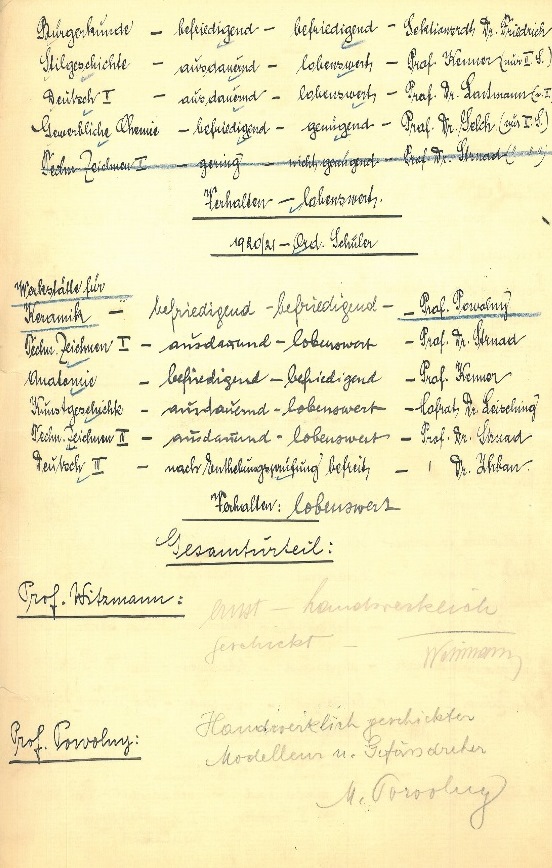 Bürgerkunde – befriedigend – befriedigend – Sektionsrdt. Dr. Friedrich
Stilgeschichte – ausdauernd – lobenswert, – Prof. Kenner (nur II. S.)
Deutsch I – ausdauernd – lobenswert, – Prof. Dr. Lantmann
Gewerbliche Chemie – befriedigend – genügend – Prof. Dr. Selch (nur I. S.)
Techn. Zeichnen I – genüg – nicht genügend – Prof. Dr. Strnad
Verhalten – lobenswert.
1920/21 – Ord. Schüler
Werkstätte für
Keramik – befriedigend – befriedigend – – Prof. Powolny
Techn. Zeichnen I – ausdauernd – lobenswert – Prof. Dr. Strnad
Anatomie – befriedigend – befriedigend – Prof. Kenner
Kunstgeschichte – ausdauernd – lobenswert – Hofrat Dr. Leisching
Techn. Zeichnen II – ausdauernd – lobenswert – Prof. Dr. Strnad
Deutsch II – nach Enthebungsprüfung befreit, – Dr. Urban.
Verhalten: lobenswert
Gesamturteil:
Prof. Witzmann: ernst – handwerklich
geschickt –
Witzmann
Prof. Powolny: Handwerklich geschickter
Modelleur u. Gefässdreher
M. Powolny